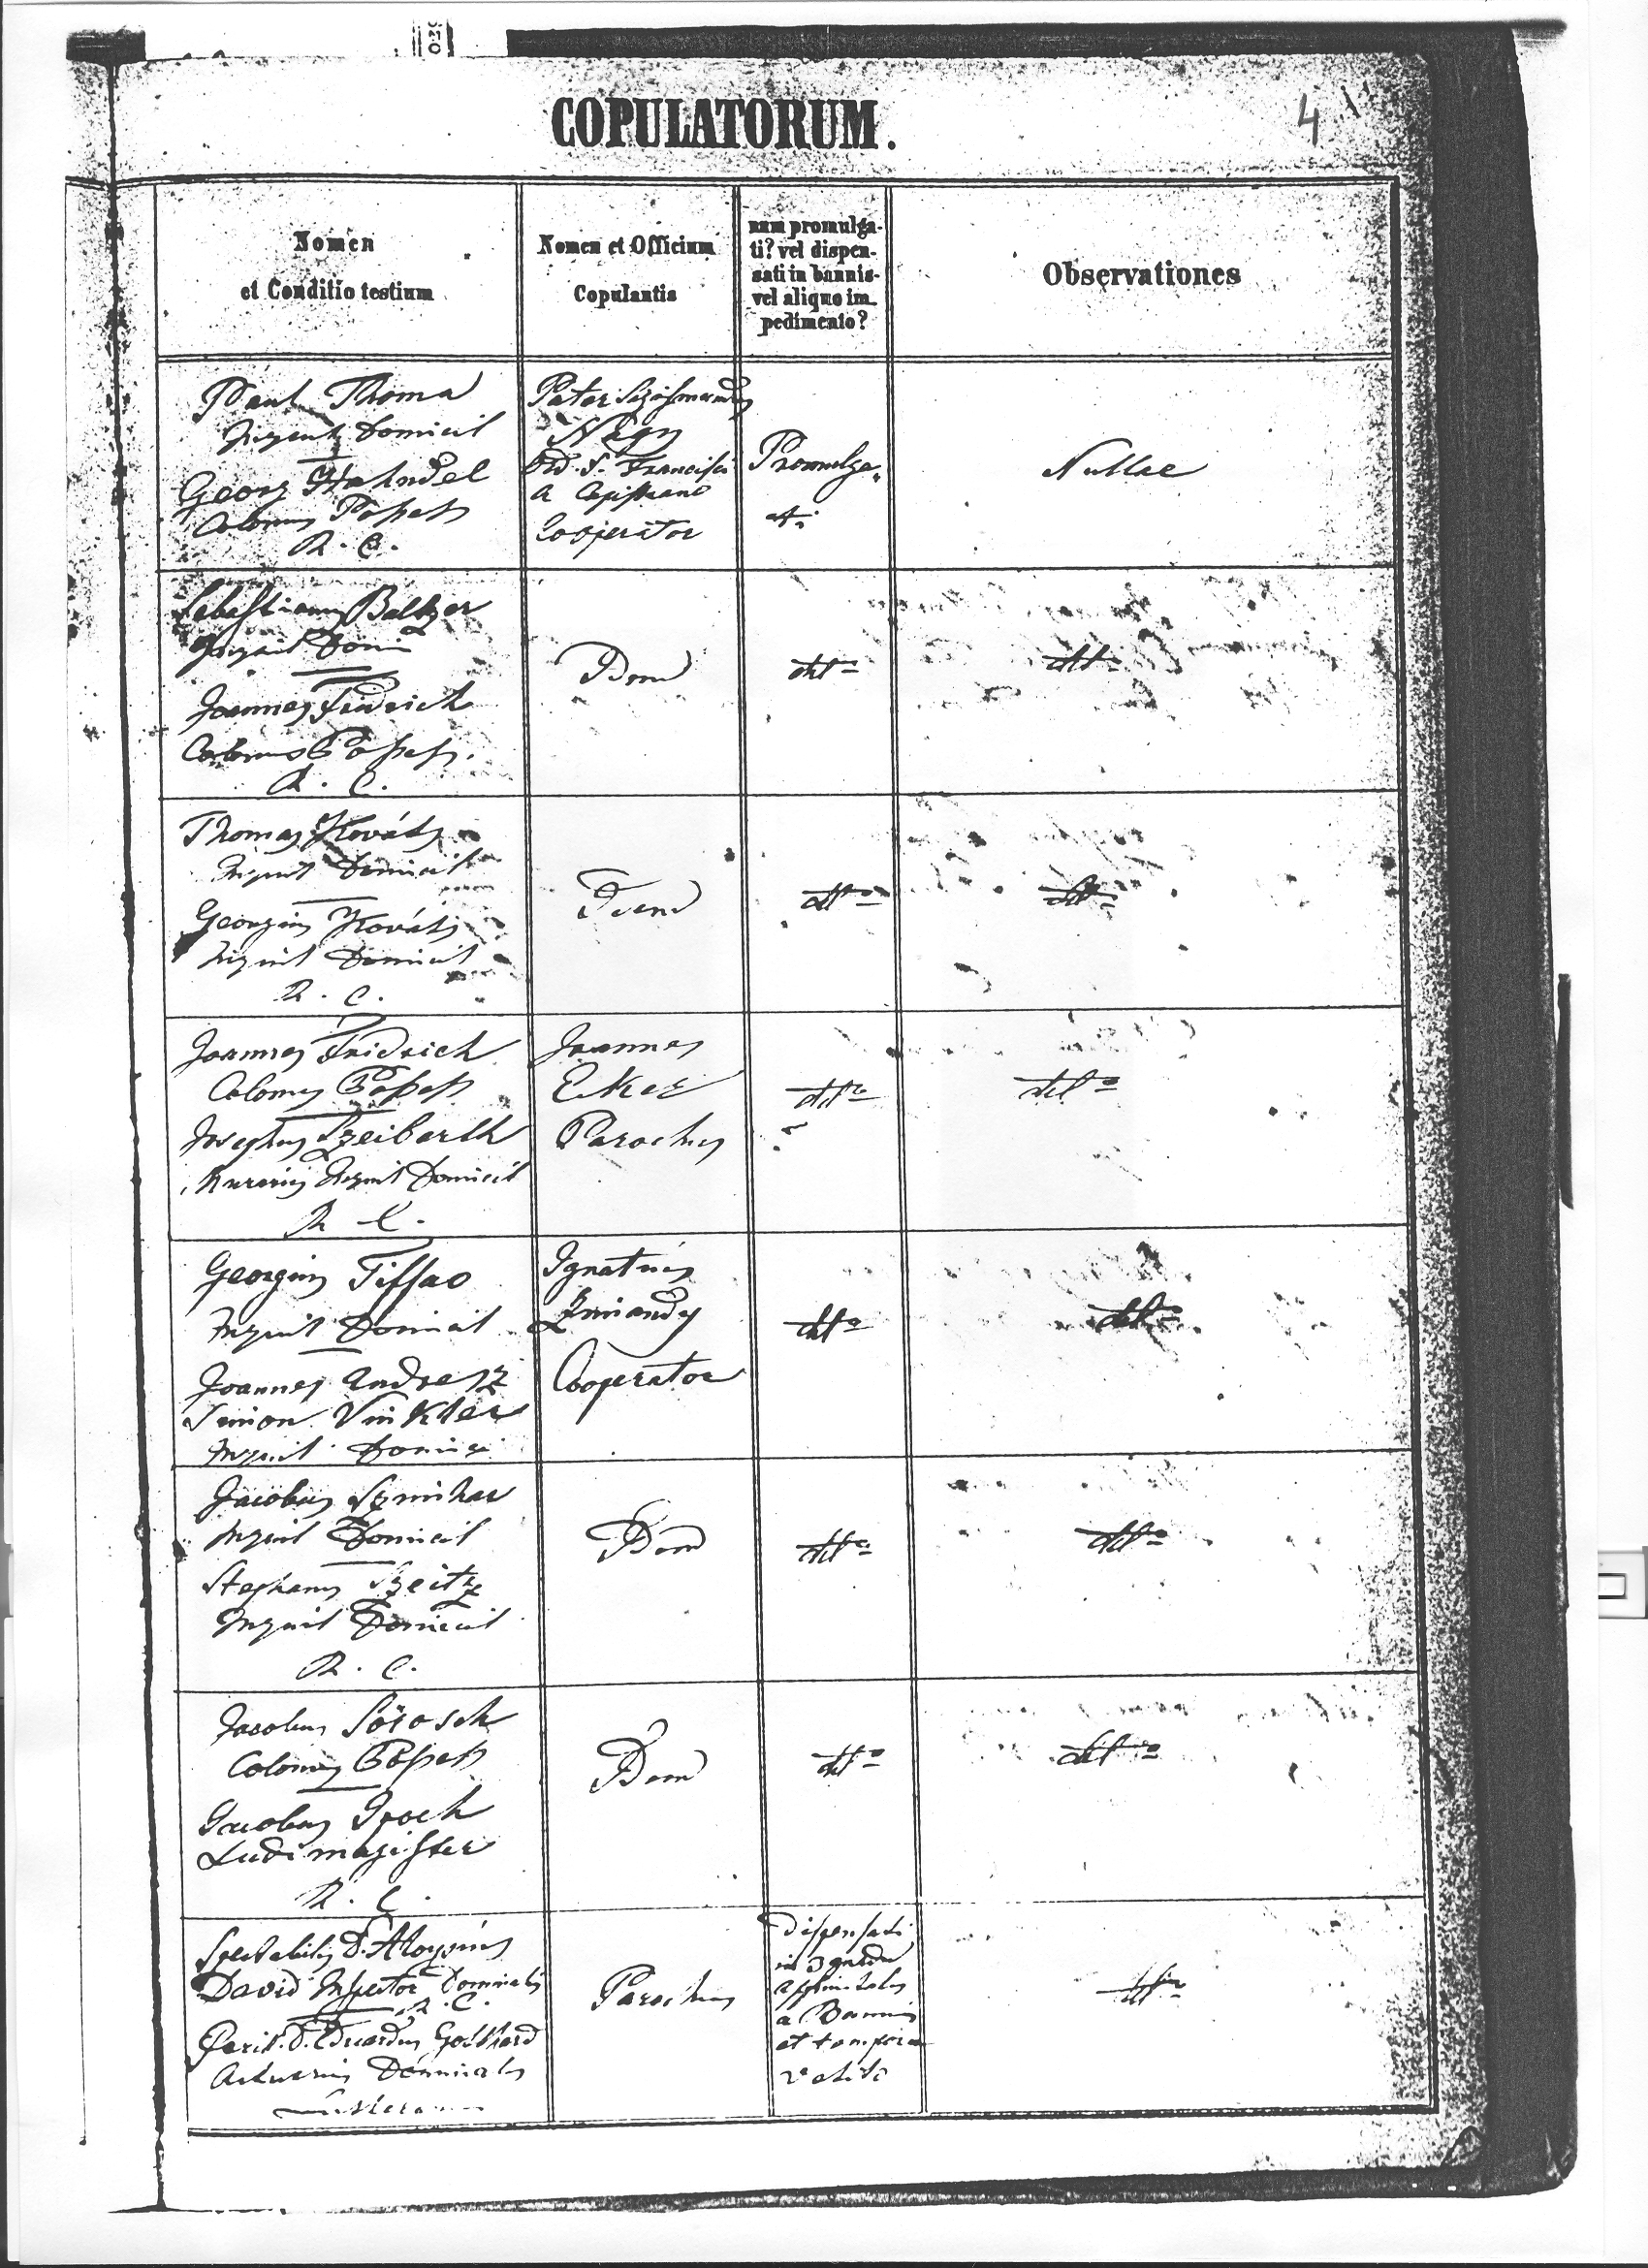 COPULATORUM.
4
Nomen
et Conditio testium
Nomen et Officium
Copulantis
num promulga-
ti? vel dispen-
sati in bannis-
vel aliquo im-
pedimento?
Observationes
Paul Thoma
Inquil Domicil
Georg Hahndel
Colonus Possess
R. C.
Pater
Nagy
Ord. S. Francisci
a Capistrano
Cooperator
Promulga-
ti
Nullae
Sebastianus Beltzer
Inquil Domi
Joannes Fridrich
Colonus Possess.
R. C.
Idem
dtto
dtto
Thomas Kováts
Inquil Domicil
Georgius Kováts
Inquil Domicil
R. C.
Idem
dtto
dtto
Joannes Fridrich
Colonus Possess
Josephus Szeiberth
Inquil Domicil
R. C.
Joannes
Eker
Parochus
dtto
dtto
Georgius Tissao
Inquil Domicil
Joannes Andresz
Simon Vinkler
Inquil Domici
Ignatius
Cooperator
dtto
dtto
Jacobus
Inquil Domicil
Stephanus Szeitz
Inquil Domicil
R. C.
Idem
dtto
dtto
Jacobus Sörosch
Colonus Possess
Jacobus
Ludimagister
R. C.
Idem
dtto
dtto
Spectabilis D. Aloysius
David Inspector Dominalis
R. C.
Perill. D. Eduardus Gotthard
Actuarius Dominalis
Parochus
Dispensati
in 3 gradu
affinitatis
a Bannis
et tempore
vetito
dtto